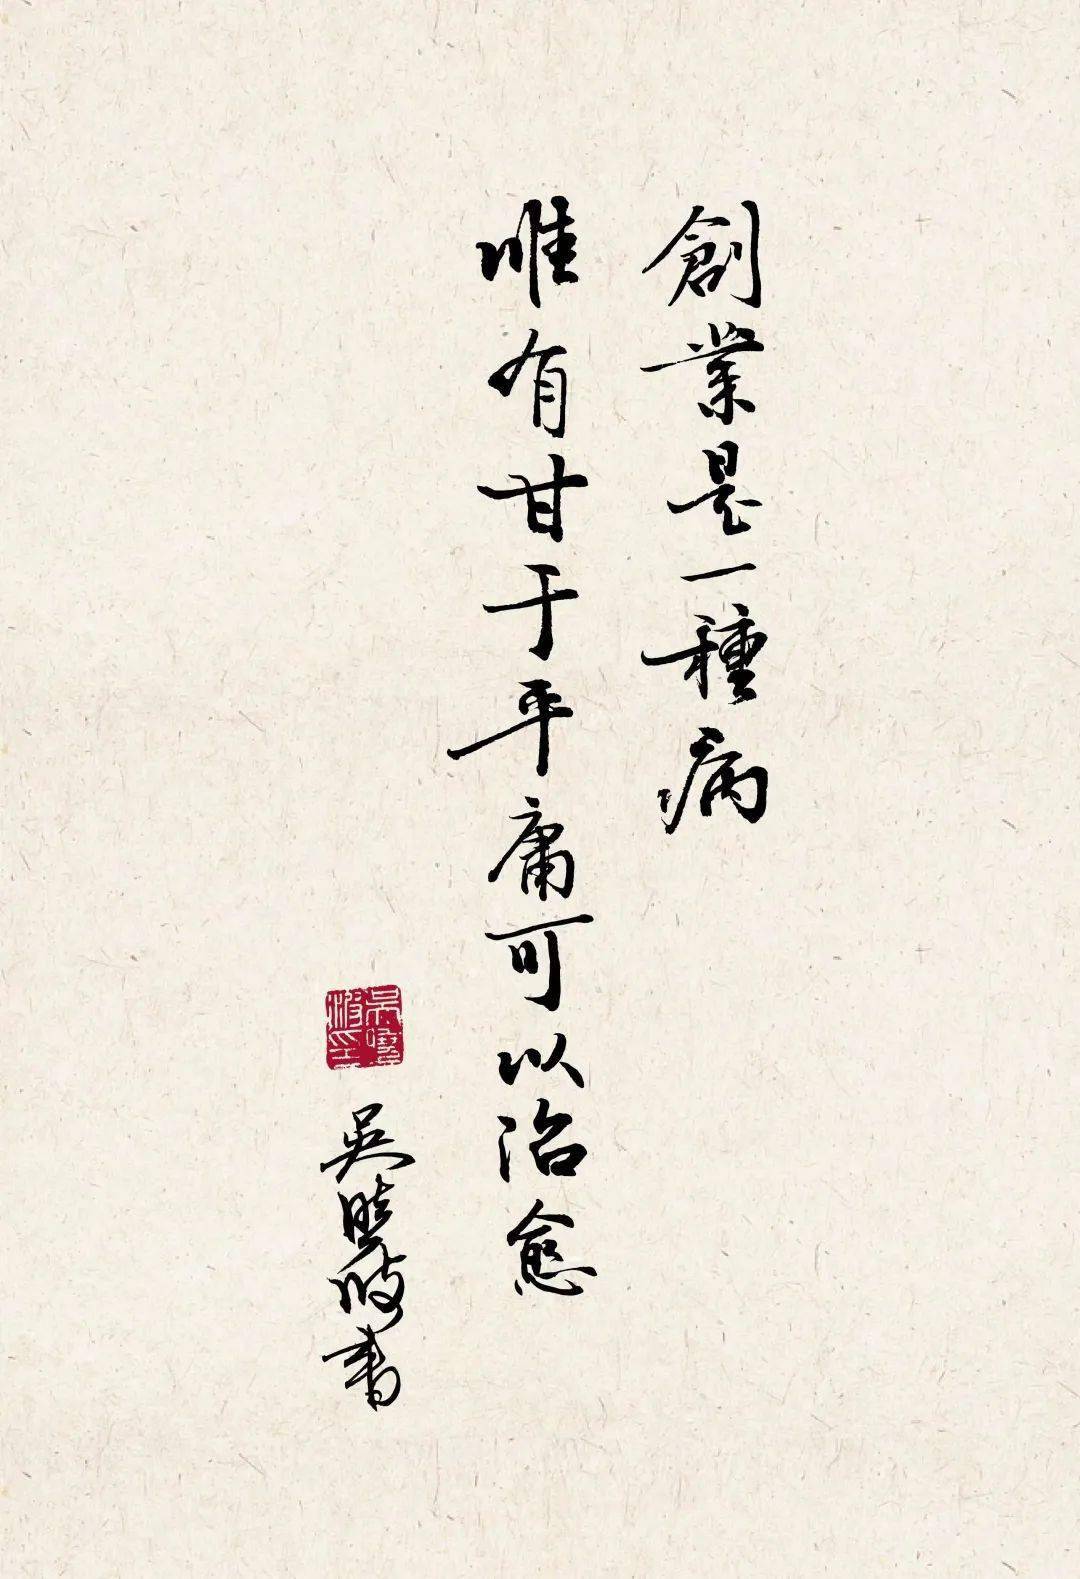 創業是一種病
唯有甘于平庸可以治愈
吳曉波書